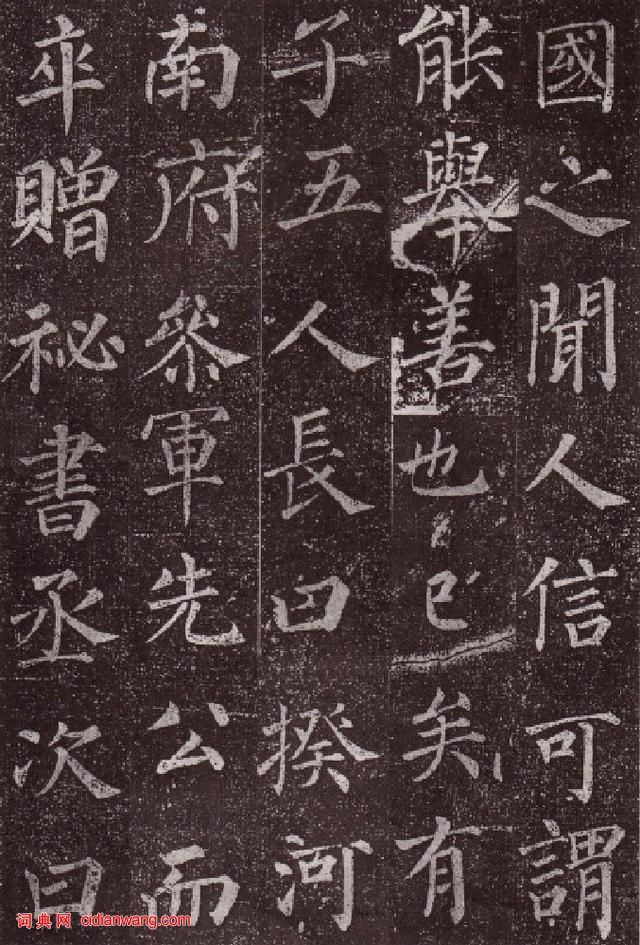 國之聞人信可謂
能舉善也已矣有
子五人長曰揆河
南府叅軍先公而
卒贈祕書丞次曰
词典网 cidianwang.com